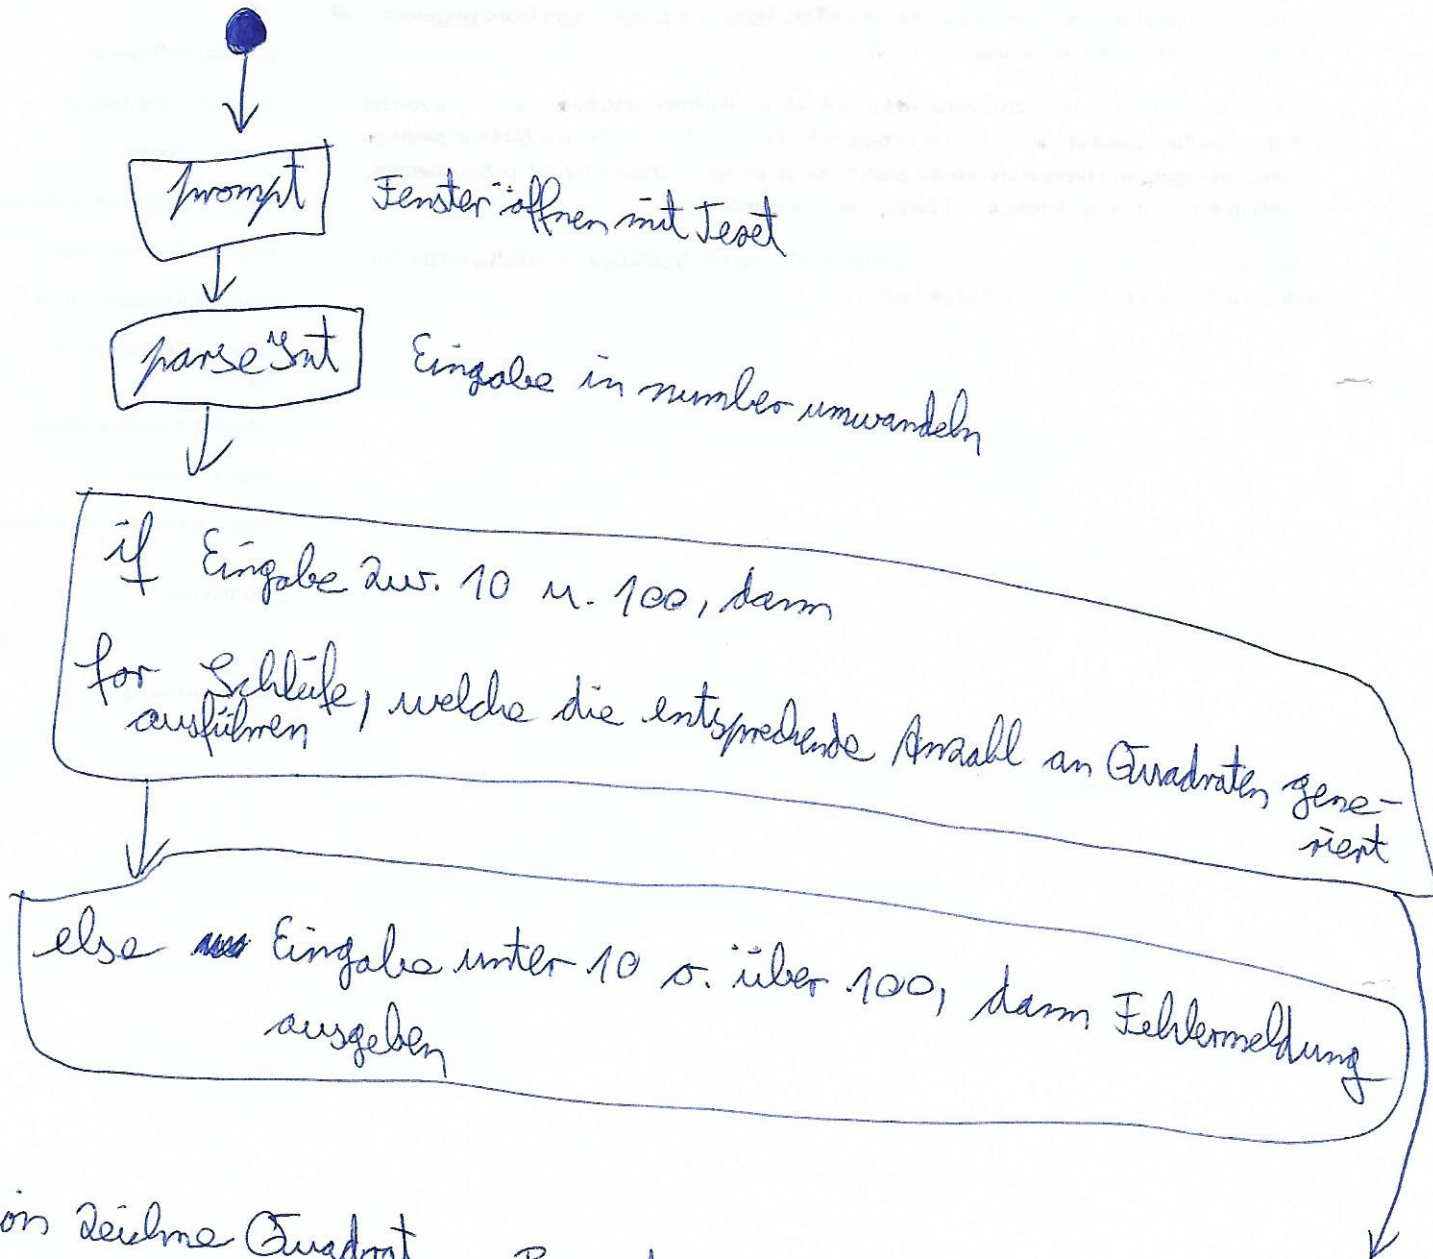 prompt Fenster öffnen mit Text
parseInt Eingabe in number umwandeln
if Eingabe zw. 10 u. 100, dann
for Schleife, welche die entsprechende Anzahl an Quadraten gene-
ausführen
riert
else Eingabe unter 10 o. über 100, dann Fehlermeldung
ausgeben
zeichne Quadrat